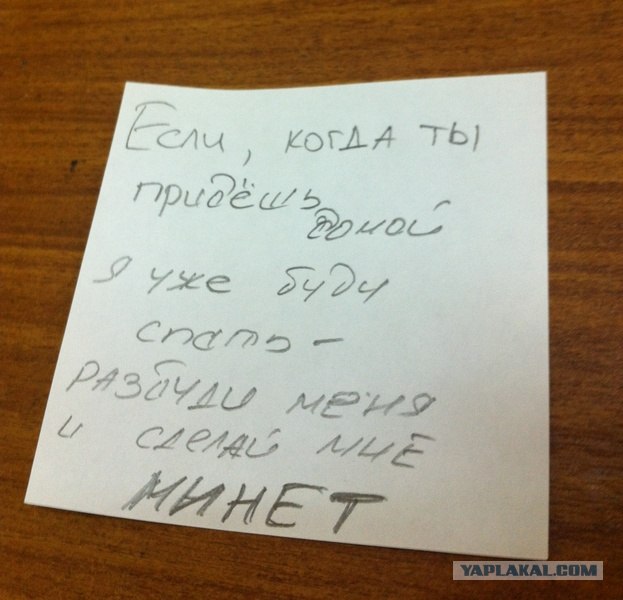 Если, когда ты
придёшь
домой
я уже буду
спать -
разбуди меня
и сделай мне
МИНЕТ
YAPLAKAL.COM